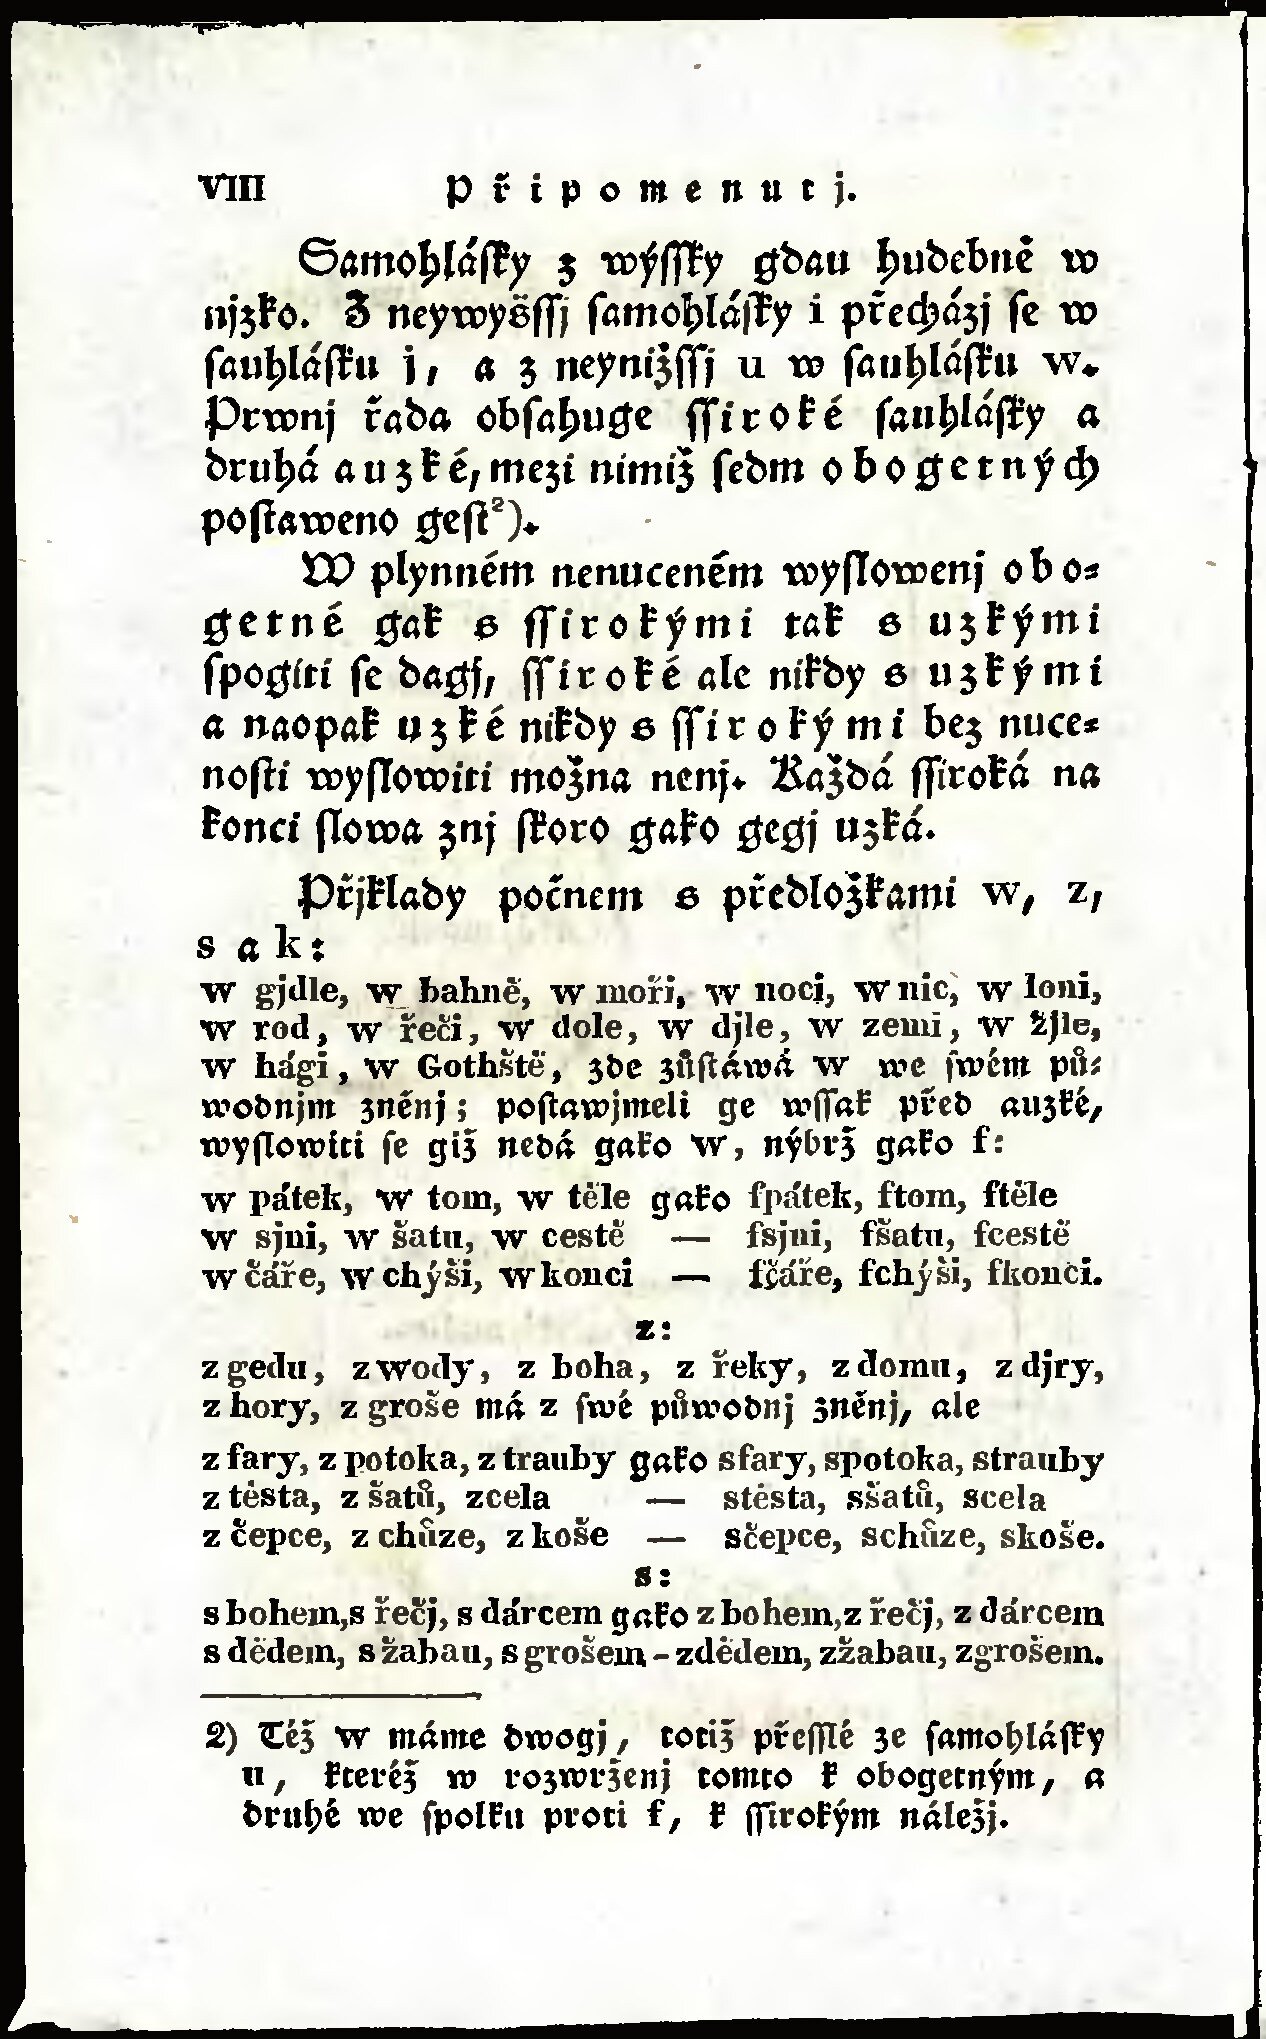 VIII Připomenutj.
Samohláſky z wýſſky gdau hudebně w
njzko. Z neywyšſſj ſamohláſky i přecházj ſe w
ſauhláſku j, a z neynižſſj u w ſauhláſku w.
Prwnj řada obſahuge ſſiroké ſauhláſky a
druhá auzké, mezi nimiž ſedm obogetných
poſtaweno geſt²).
W plynném nenuceném wyſlowenj obo-
getné gak s ſſirokými tak s uzkými
ſpogiti ſe dagj, ſſiroké ale nikdy s uzkými
a naopak uzké nikdy s ſſirokými bez nuce-
noſti wyſlowiti možna nenj. Každá ſſiroká na
konci ſlowa znj ſkoro gako gegj uzká.
Přjklady počnem s předložkami w, z,
s a k:
w gjdle, w bahně, w moři, w noci, w nic, w loni,
w rod, w řeči, w dole, w djle, w zemi, w žjle,
w hági, w Gothště, zde zůſtáwá w we ſwém pů-
wodnjm zněnj; poſtawjmeli ge wſſak před auzké,
wyſlowiti ſe giž nedá gako w, nýbrž gako f:
w pátek, w tom, w těle gako fpátek, ftom, ftěle
w sjni, w šatu, w cestě — fsjni, fšatu, fcestě
w čáře, w chýši, w konci — fčáře, fchýši, fkonci.
z:
z gedu, z wody, z boha, z řeky, z domu, z djry,
z hory, z groše má z ſwé půwodnj zněnj, ale
z fary, z potoka, z trauby gako sfary, spotoka, strauby
z těsta, z šatů, zcela — stěsta, sšatů, scela
z čepce, z chůze, z koše — sčepce, schůze, skoše.
s:
s bohem, s řečj, s dárcem gako z bohem, z řečj, z dárcem
s dědem, s žabau, s grošem - zdědem, zžabau, zgrošem.
2) Též w máme dwogj, totiž přeſſlé ze ſamohláſky
u, kteréž w rozwrženj tomto k obogetným, a
druhé we ſpolku proti f, k ſſirokým náležj.